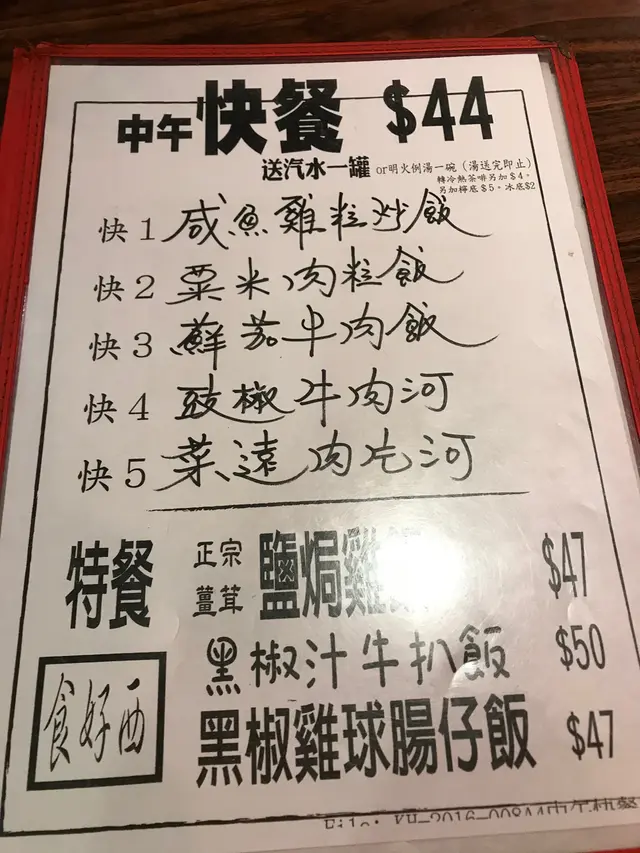 中午快餐 $44
送汽水一罐 or明火例湯一碗（湯送完即止）
轉冷熱茶啡另加$4。
另加檸底$5。冰底$2
快1 咸魚雞粒炒飯
快2 粟米肉粒飯
快3 蘚茄牛肉飯
快4 豉椒牛肉河
快5 菜遠肉片河
特餐 正宗薑茸 鹽焗雞 $47
黑椒汁牛扒飯 $50
食好西
黑椒雞球腸仔飯 $47